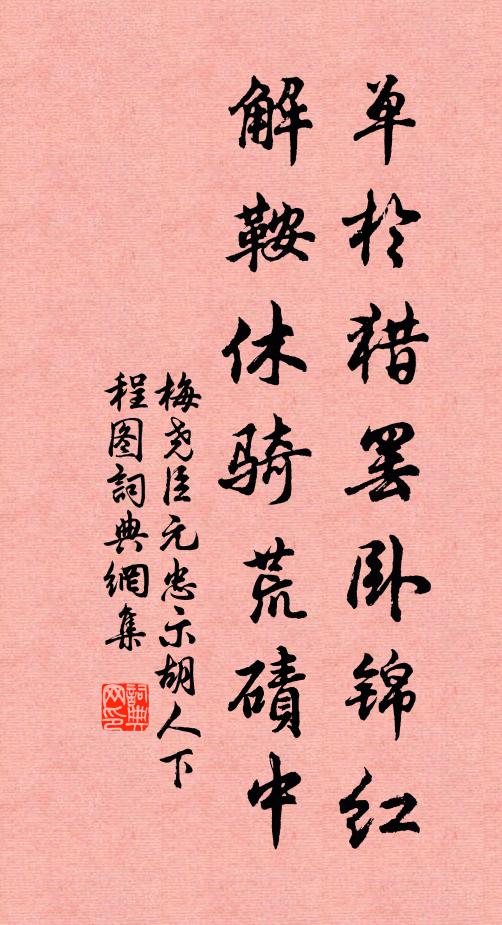 单於猎罢卧锦红
解鞍休骑荒碛中
梅尧臣元忠示胡人下
程图词典網集
詞典網印